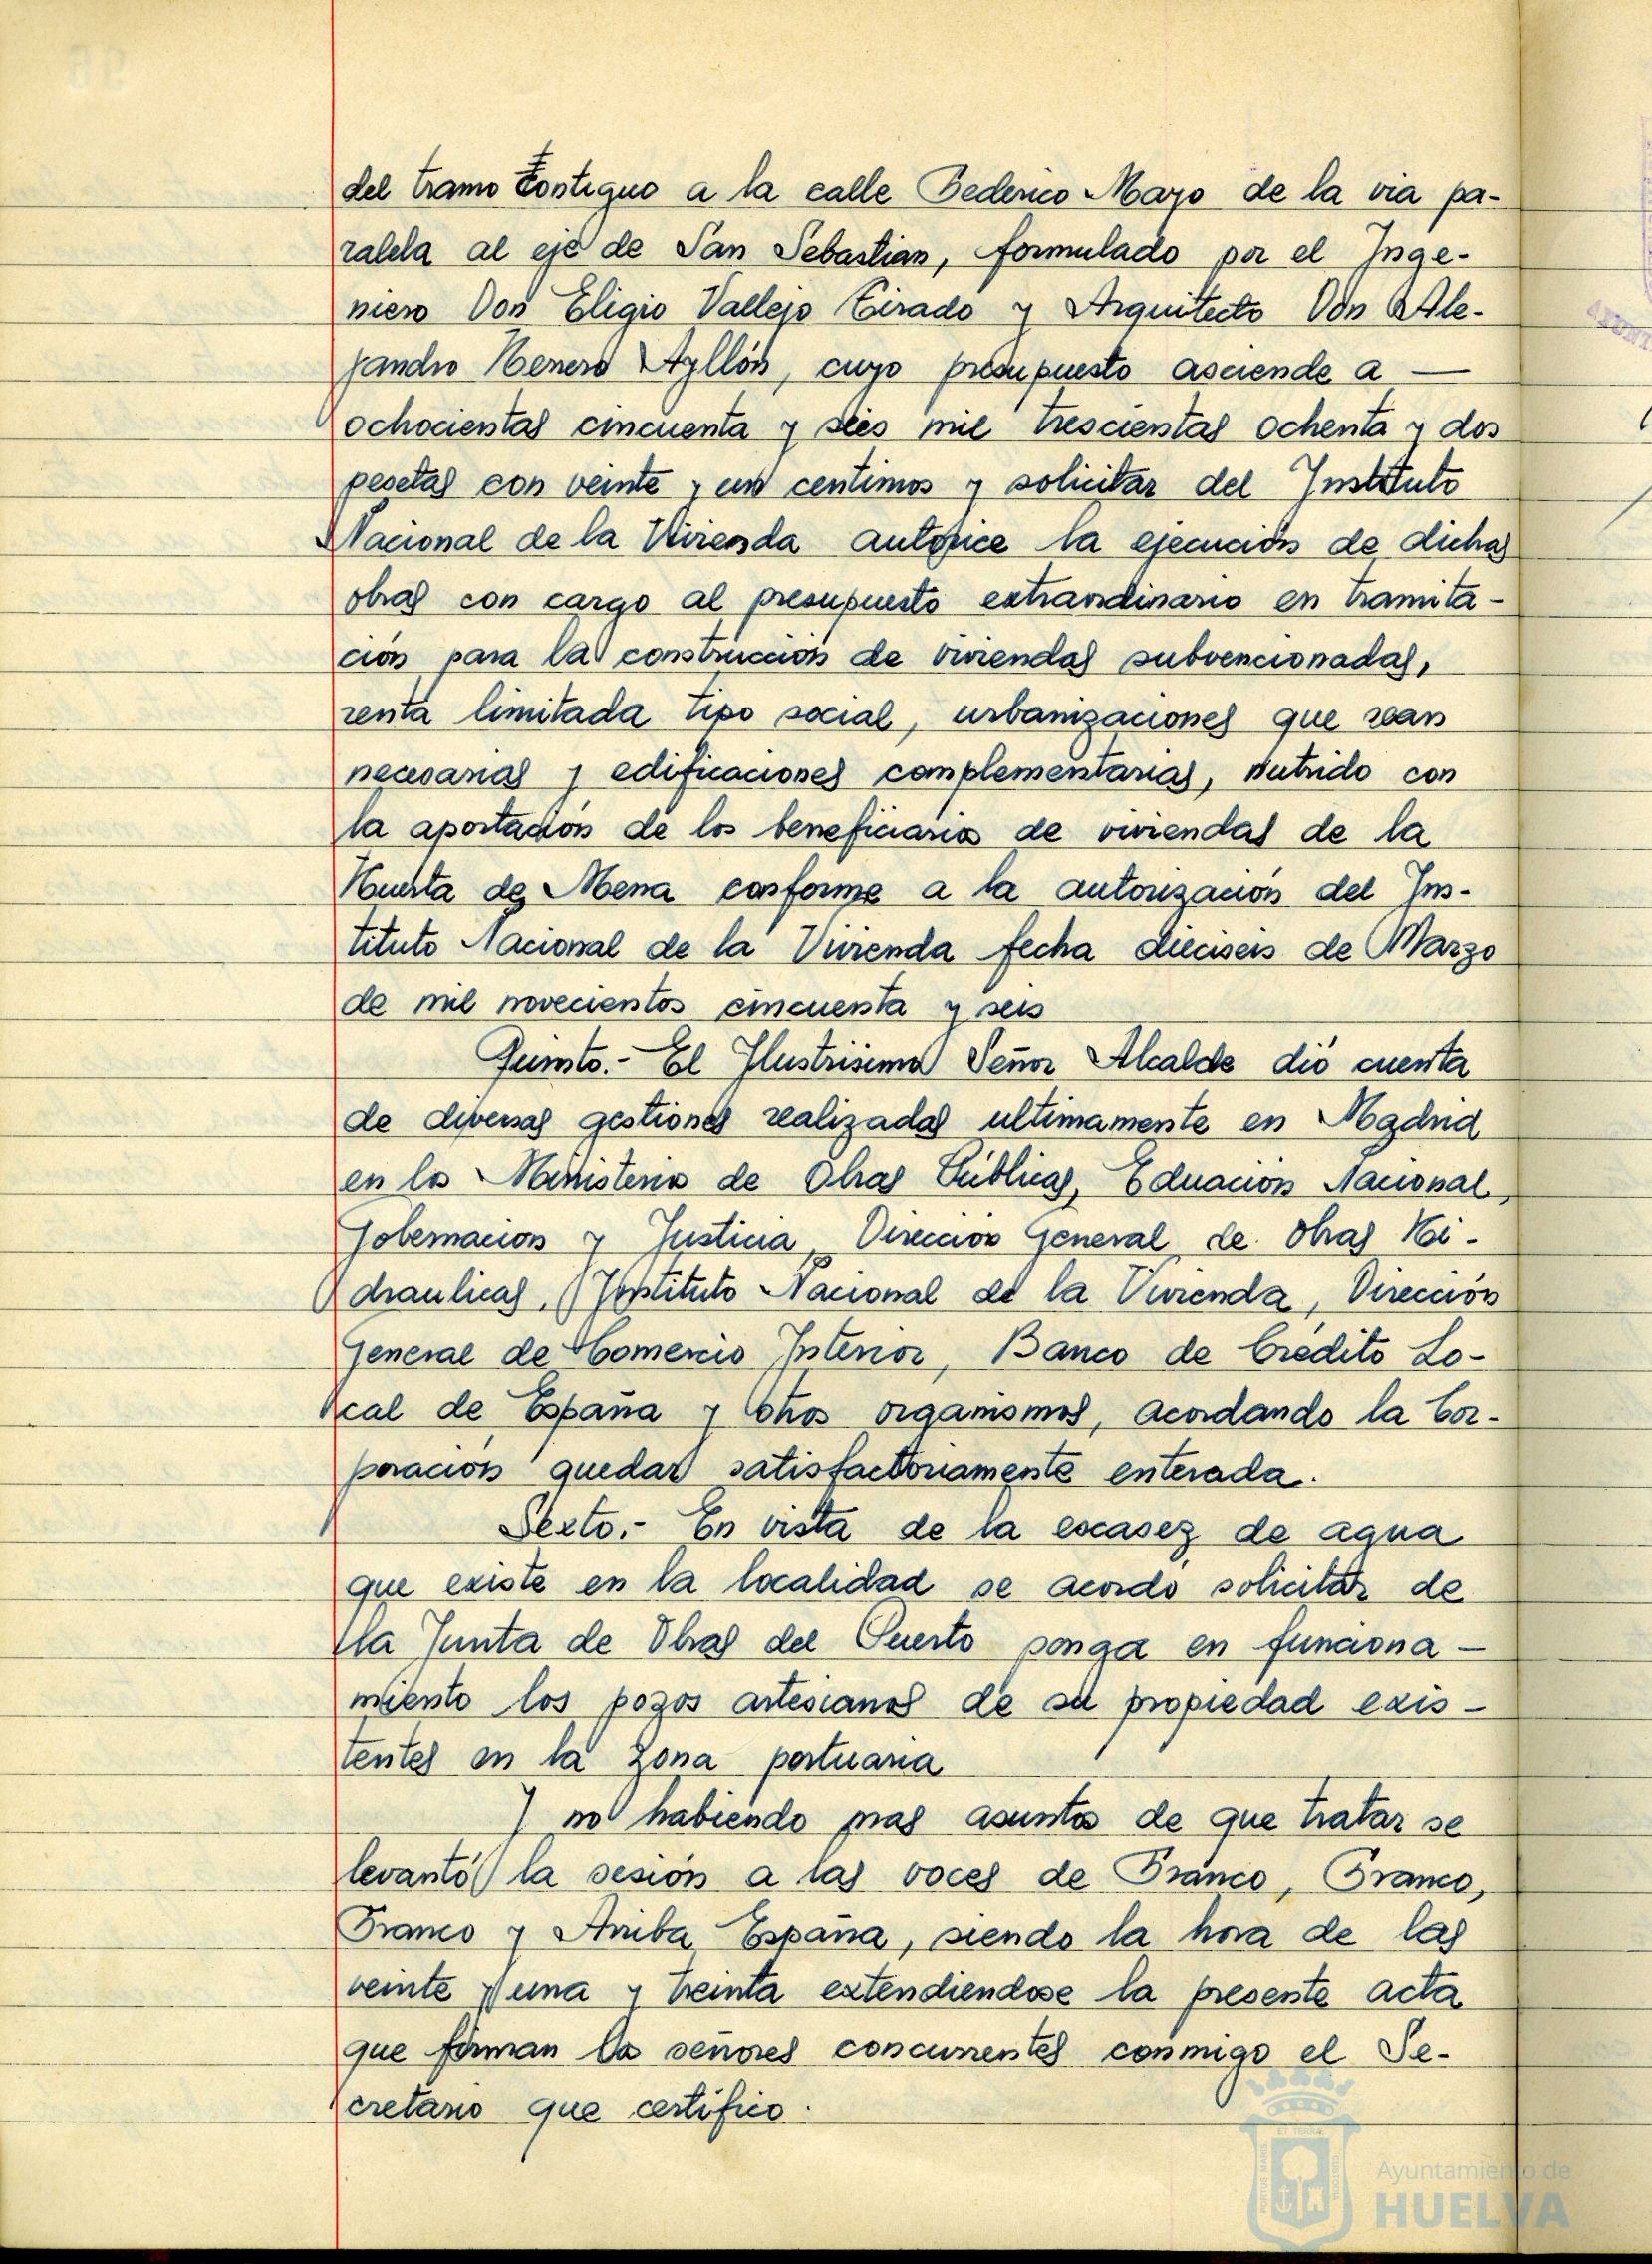 del tramo contiguo a la calle Federico Mayo de la via pa-
ralela al eje de San Sebastian, formulado por el Inge-
niero Don Eligio Vallejo Tirado y Arquitecto Don Ale-
jandro Herrero Ayllón, cuyo presupuesto asciende a —
ochocientas cincuenta y seis mil trescientas ochenta y dos
pesetas con veinte y un centimos y solicitar del Instituto
Nacional de la Vivienda autorice la ejecución de dichas
obras con cargo al presupuesto extraordinario en tramita-
ción para la construcción de viviendas subvencionadas,
renta limitada tipo social, urbanizaciones que sean
necesarias y edificaciones complementarias, nutrido con
la aportación de los beneficiarios de viviendas de la
Huerta de Mena conforme a la autorización del Ins-
tituto Nacional de la Vivienda fecha dieciseis de Marzo
de mil novecientos cincuenta y seis
Quinto.- El Ilustrisimo Señor Alcalde dió cuenta
de diversas gestiones realizadas ultimamente en Madrid
en los Ministerios de Obras Públicas, Eduación Nacional,
Gobernacion y Justicia, Direccion General de Obras Hi-
draulicas, Instituto Nacional de la Vivienda, Dirección
General de Comercio Interior, Banco de Crédito Lo-
cal de España y otros organismos, acordando la Cor-
poración quedar satisfactoriamente enterada.
Sexto.- En vista de la escasez de agua
que existe en la localidad se acordó solicitar de
la Junta de Obras del Puerto ponga en funciona-
miento los pozos artesianos de su propiedad exis-
tentes en la zona portuaria
Y no habiendo mas asuntos de que tratar se
levantó la sesión a las voces de Franco, Franco,
Franco y Arriba España, siendo la hora de las
veinte y una y treinta extendiendose la presente acta
que firman los señores concurrentes conmigo el Se-
cretario que certifico.
Ayuntamiento de
HUELVA